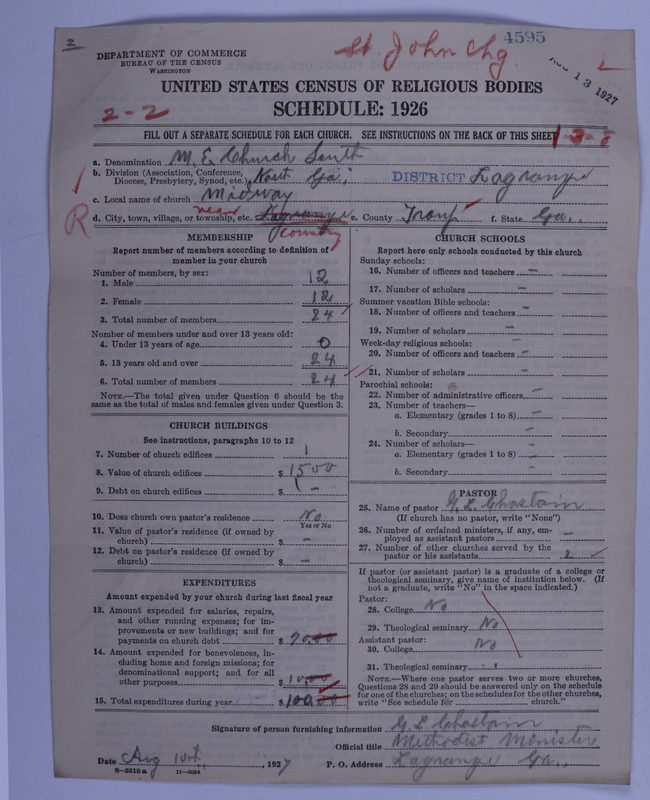 2
4595
St. John Chg.
DEPARTMENT OF COMMERCE
BUREAU OF THE CENSUS
WASHINGTON
AUG 13 1927
UNITED STATES CENSUS OF RELIGIOUS BODIES
2-2
SCHEDULE: 1926
FILL OUT A SEPARATE SCHEDULE FOR EACH CHURCH. SEE INSTRUCTIONS ON THE BACK OF THIS SHEET
a. Denomination M. E. Church South
b. Division (Association, Conference, Diocese, Presbytery, Synod, etc.) Ga. DISTRICT Lagrange
c. Local name of church Midway
R
d. City, town, village, or township, etc. near Lagrange e. County Troup f. State Ga.
country
MEMBERSHIP
Report number of members according to definition of
member in your church
Number of members, by sex:
1. Male 12
2. Female 12
3. Total number of members 24
Number of members under and over 13 years old:
4. Under 13 years of age 0
5. 13 years old and over 24
6. Total number of members 24
NOTE.—The total given under Question 6 should be the
same as the total of males and females given under Question 3.
CHURCH BUILDINGS
See instructions, paragraphs 10 to 12
7. Number of church edifices 1
8. Value of church edifices $ 1500
9. Debt on church edifices $ -
10. Does church own pastor's residence No
Yes or No
11. Value of pastor's residence (if owned by
church) $ -
12. Debt on pastor's residence (if owned by
church) $ -
EXPENDITURES
Amount expended by your church during last fiscal year
13. Amount expended for salaries, repairs,
and other running expenses; for im-
provements or new buildings; and for
payments on church debt $ 90.00
14. Amount expended for benevolences, in-
cluding home and foreign missions; for
denominational support; and for all
other purposes $ 10.00
15. Total expenditures during year $ 100.00
CHURCH SCHOOLS
Report here only schools conducted by this church
Sunday schools:
16. Number of officers and teachers -
17. Number of scholars -
Summer vacation Bible schools:
18. Number of officers and teachers -
19. Number of scholars -
Week-day religious schools:
20. Number of officers and teachers -
21. Number of scholars -
Parochial schools:
22. Number of administrative officers -
23. Number of teachers—
a. Elementary (grades 1 to 8) -
b. Secondary -
24. Number of scholars—
a. Elementary (grades 1 to 8) -
b. Secondary -
PASTOR
25. Name of pastor G. L. Chastain
(If church has no pastor, write "None")
26. Number of ordained ministers, if any, em-
ployed as assistant pastors -
27. Number of other churches served by the
pastor or his assistants 2
If pastor (or assistant pastor) is a graduate of a college or
theological seminary, give name of institution below. (If
not a graduate, write "No" in the space indicated.)
Pastor:
28. College No
29. Theological seminary No
Assistant pastor:
30. College No
31. Theological seminary
NOTE.—Where one pastor serves two or more churches,
Questions 28 and 29 should be answered only on the schedule
for one of the churches; on the schedules for the other churches,
write "See schedule for church."
Signature of person furnishing information G. L. Chastain
Official title Methodist Minister
Date Aug 10th, 1927 P. O. Address Lagrange Ga.
8-5518a 11-9064